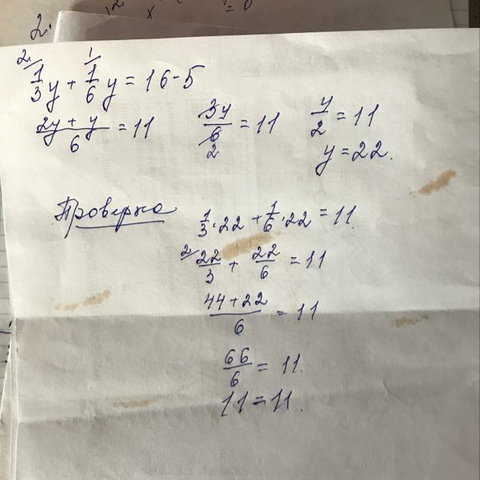 2.
2/ 1/
1/3 y + 1/6 y = 16-5
(2y + y)/6 = 11   3y/6 = 11   y/2 = 11
2   y = 22.
Проверка
1/3 · 22 + 1/6 · 22 = 11.
2/ 22/3 + 22/6 = 11
(44+22)/6 = 11
66/6 = 11.
11 = 11.